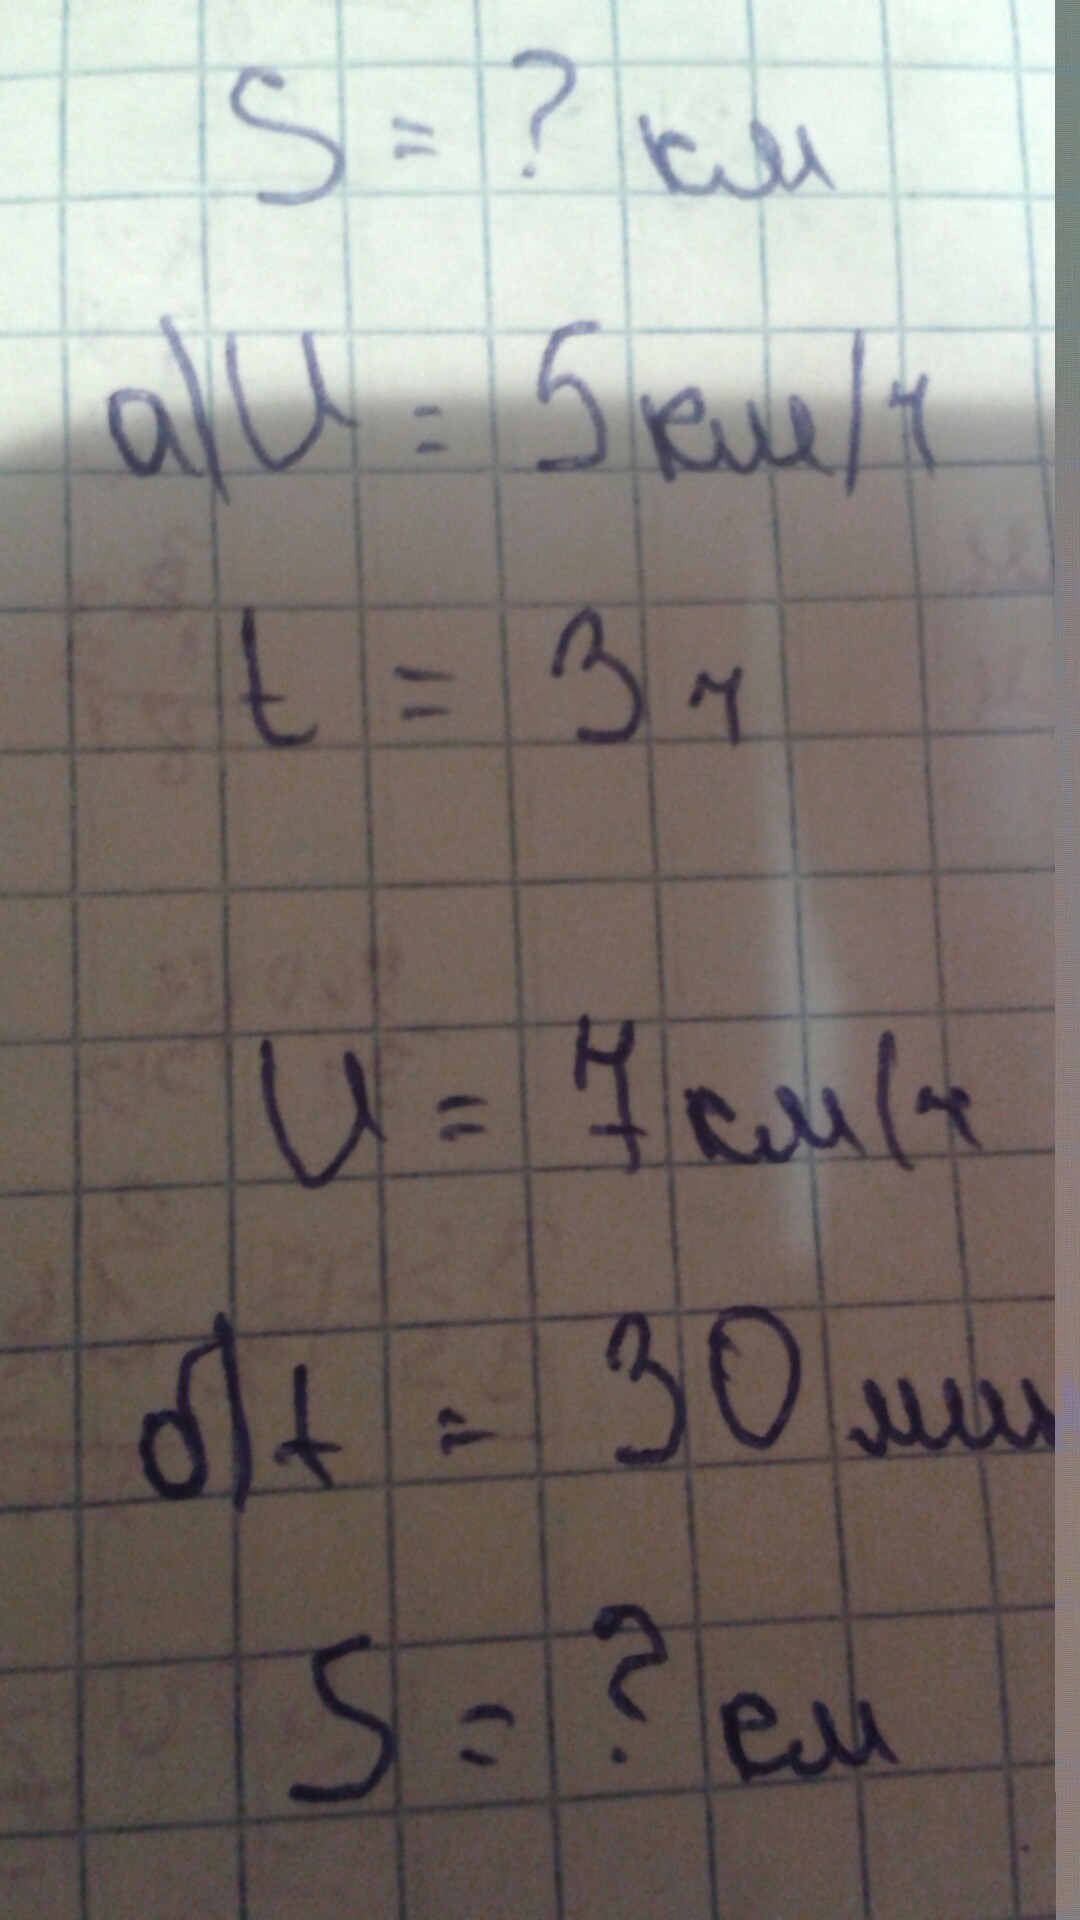 S = ? км
а) V = 5 км/ч
t = 3 ч
V = 7 км/ч
б) t = 30 мин
S = ? км